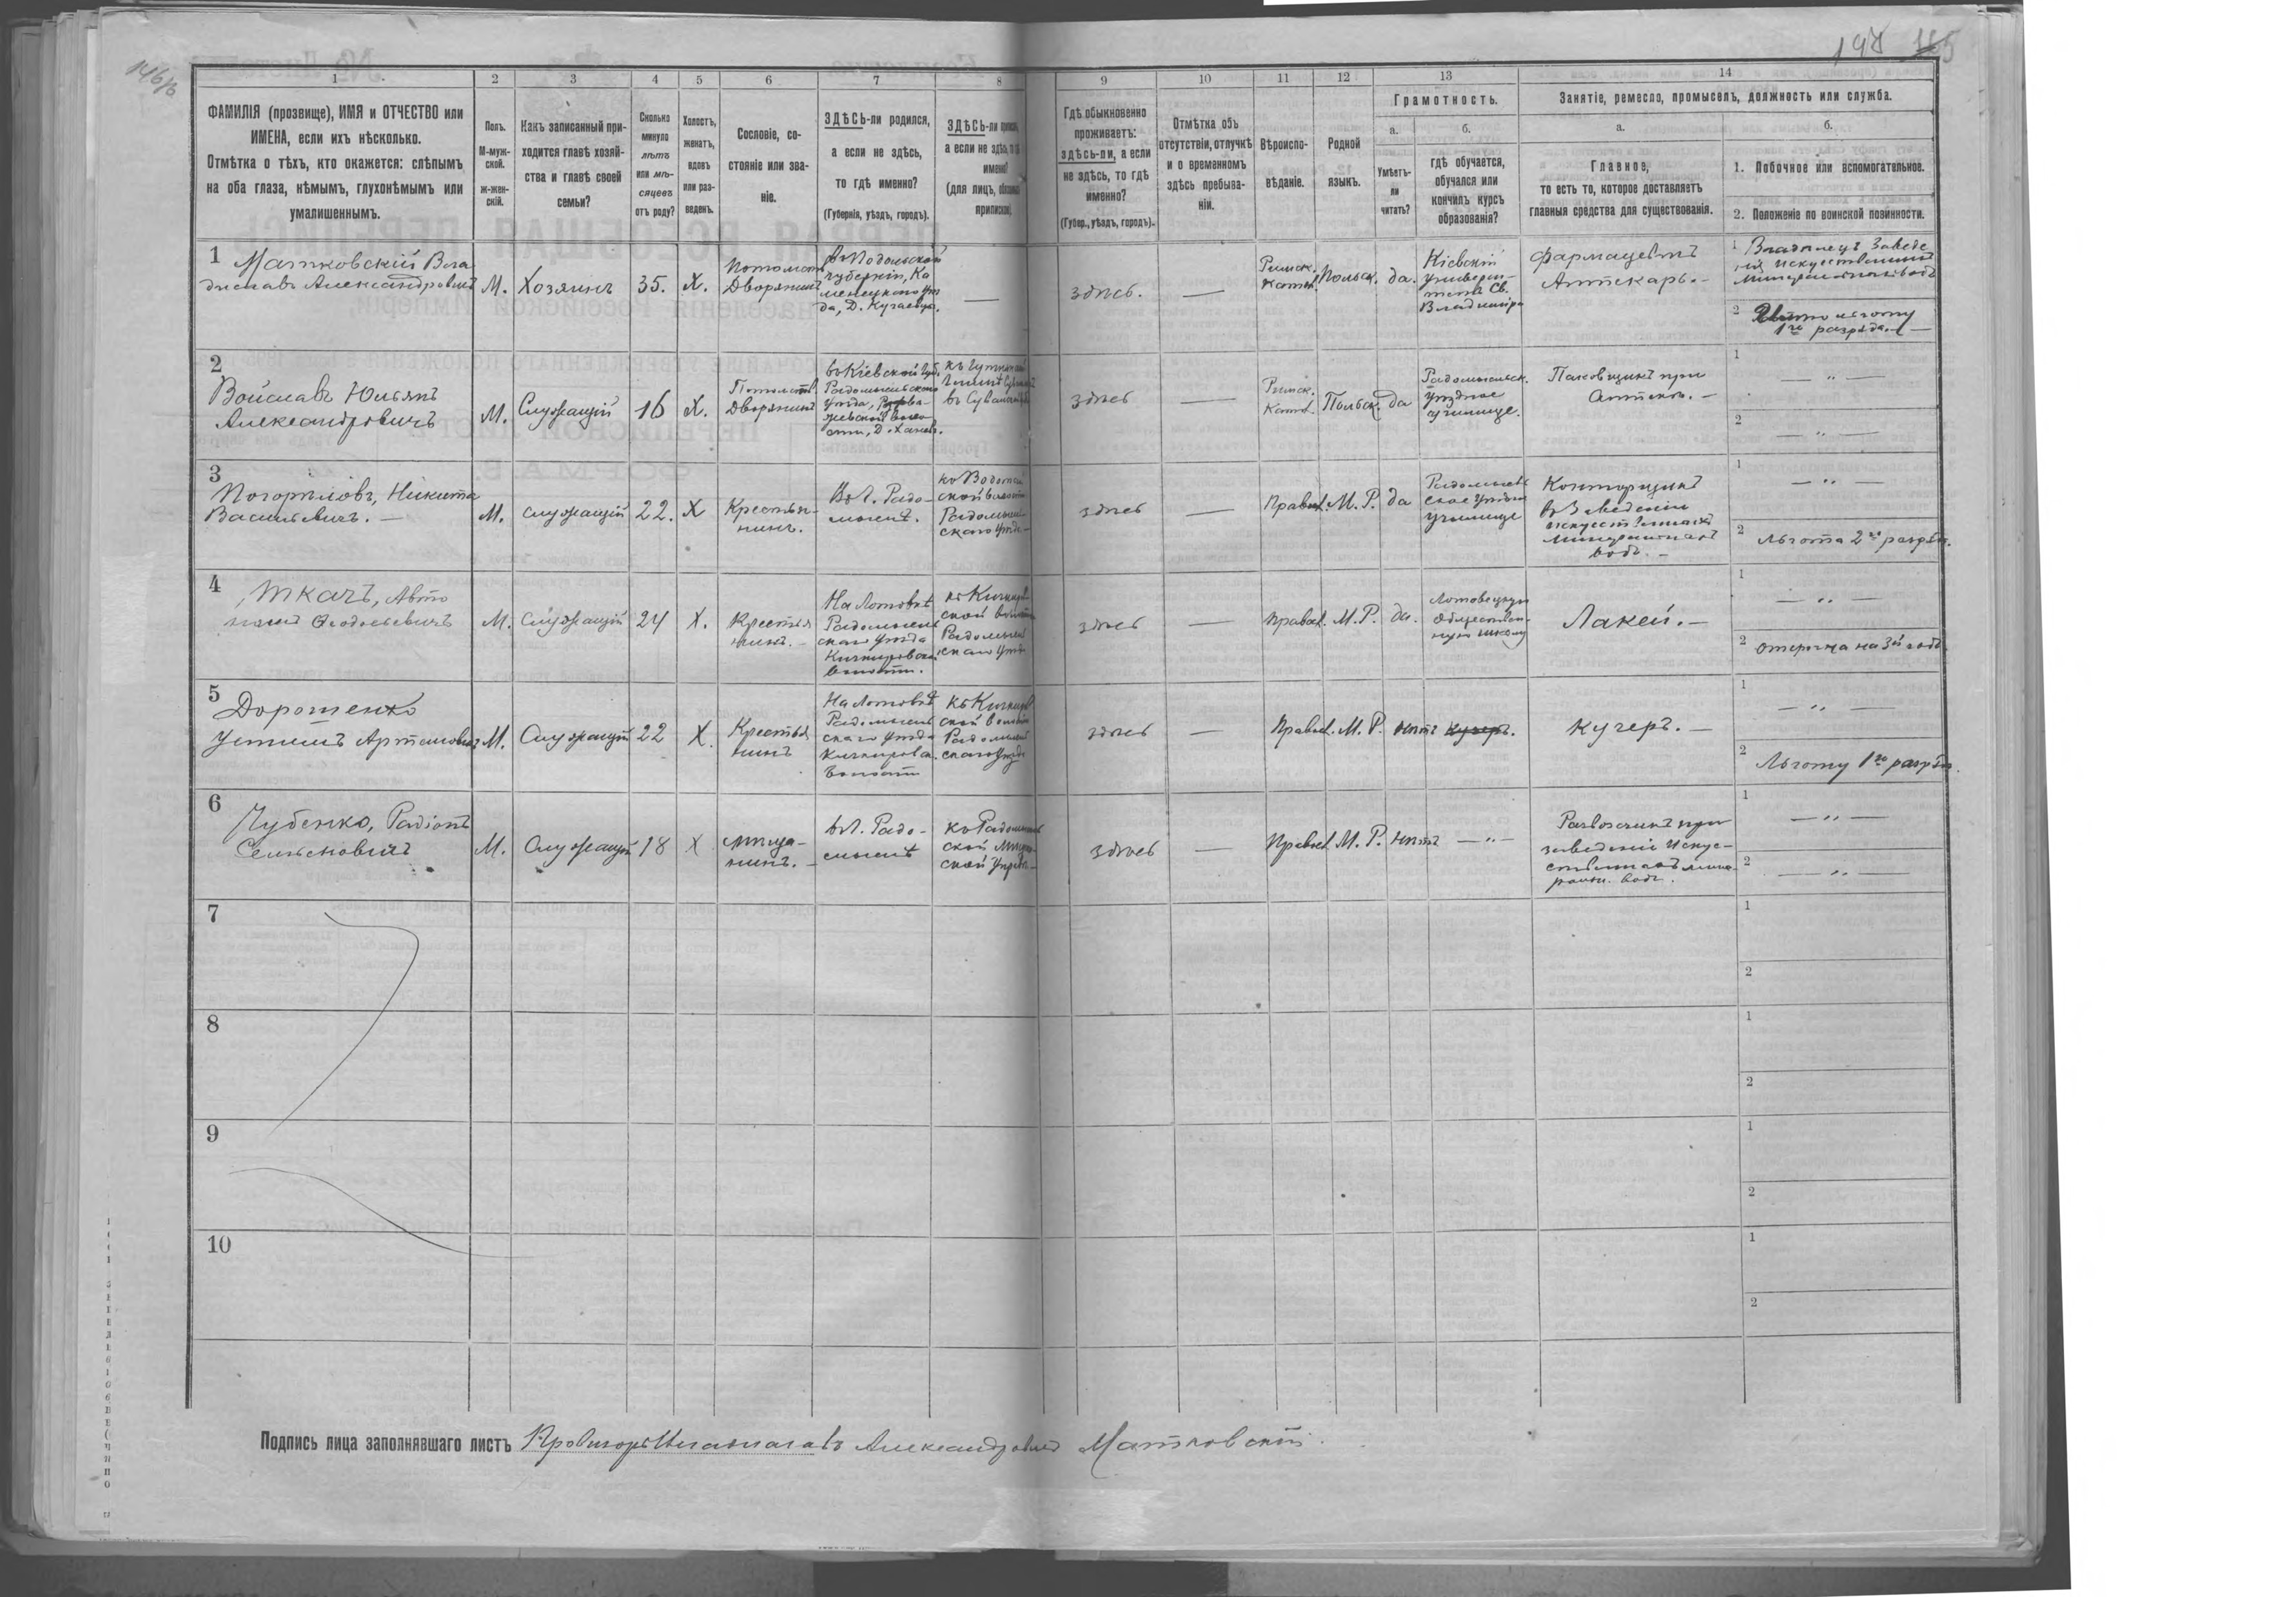 146/б
198 185
1 2 3 4 5 6 7 8 9 10 11 12 13 14
ФАМИЛІЯ (прозвище), ИМЯ и ОТЧЕСТВО или
ИМЕНА, если ихъ нѣсколько.
Отмѣтка о тѣхъ, кто окажется: слѣпымъ
на оба глаза, нѣмымъ, глухонѣмымъ или
умалишеннымъ.
Полъ.
М-муж-
ской.
ж-жен-
скій.
Какъ записанный при-
ходится главѣ хозяй-
ства и главѣ своей
семьи?
Сколько
минуло
лѣтъ
или мѣ-
сяцевъ
отъ роду?
Холостъ,
женатъ,
вдовъ
или раз-
веденъ.
Сословіе, со-
стояніе или зва-
ніе.
ЗДѢСЬ-ли родился,
а если не здѣсь,
то гдѣ именно?
(Губернія, уѣздъ, городъ).
ЗДѢСЬ-ли
а если не здѣсь,
именно?
(для лицъ,
приписки)
Гдѣ обыкновенно
проживаетъ:
здѣсь-ли, а если
не здѣсь, то гдѣ
именно?
(Губер., уѣздъ, городъ).
Отмѣтка объ
отсутствіи, отлучкѣ
и о временномъ
здѣсь пребыва-
ніи.
Вѣроиспо-
вѣданіе.
Родной
языкъ.
Грамотность.
а.
Умѣетъ-
ли
читать?
б.
гдѣ обучается,
обучался или
кончилъ курсъ
образованія?
Занятіе, ремесло, промыселъ, должность или служба.
а.
Главное,
то есть то, которое доставляетъ
главныя средства для существованія.
б.
1. Побочное или вспомогательное.
2. Положеніе по воинской повинности.
1
Матковскій Вла
диславъ Александровичъ
М.
Хозяинъ
35.
Х.
Потомст
Дворянинъ
въ Подольской
губерніи, Ка
менецкого уѣз
да, Д.
—
здѣсь.
—
Римск.
Катол.
Польск.
да.
Кіевскій
Универси-
тетъ Св.
Владиміра
Фармацевтъ
Аптекарь. -
1 Владѣлецъ Заведе
нія искуственныхъ
минеральныхъ водъ
2 льготу
1го разряда. —
2
Войславъ Юльянъ
Александровичъ
М.
Служащій
16
Х.
Потомств.
Дворянинъ
въ Кіевской губ.
Радомысльского
уѣзда,
сти, Д.
здѣсь
Римск.
Катол.
Польск.
да
Радомысльск.
уѣздное
училище.
Паковщикъ при
Аптекѣ. -
1 — " —
2 — " —
3
Погорѣловъ, Никита
Васильевичъ. —
М.
служащій
22.
Х
Крестья-
нинъ.
Въ Г. Радо-
мыслѣ.
Радомысль-
скаго уѣзда
здѣсь
—
Правосл.
М. Р.
да
Радомысль
ское уѣздн
училище
Конторщикъ
въ Заведеніи
искуственныхъ
минеральныхъ
водъ. -
1 — " —
2 Льгота 2го разряда.
4
Ткачъ, Авто
номъ Феодосьевичъ
М.
Служащій
24
Х.
Крестья
нинъ. -
Радомысль
скаго уѣзда
волости.
Радомысль
скаго уѣзда
здѣсь
—
Правосл.
М. Р.
да.
Общественную школу
Лакей. —
1 — " —
2 отсрочка на 3й годъ
5
Дорошенко
Устимъ Артемовичъ
М.
Служащій
22
Х.
Крестья
нинъ
Радомысль
скаго уѣзда
волости
Радомысль
скаго уѣзда
здѣсь
—
Правосл.
М. Р.
нѣтъ
Кучеръ.
Кучеръ. —
1 — " —
2 Льготу 1го разряда.
6
Чубенко, Радіонъ
Семеновичъ
М.
Служащій
18
Х
мѣща-
нинъ. -
въ Г. Радо-
мыслѣ
къ Радомысль
ской Мѣщан
ской Управѣ -
здѣсь
—
Правосл.
М. Р.
нѣтъ
— " —
Развозчикъ при
заведеніи Искус-
ственныхъ мине-
ральн. водъ.
1 — " —
2 — " —
7
1
2
8
1
2
9
1
2
10
1
2
Подпись лица заполнявшаго листъ Провизоръ Александровичъ Матковскій.